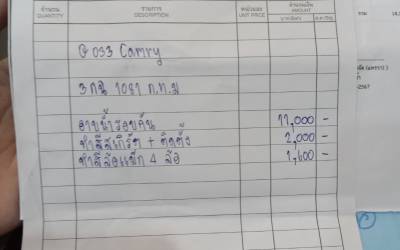 จำนวน QUANTITY รายการ DESCRIPTION หน่วยละ UNIT PRICE จำนวนเงิน AMOUNT
Camry
3กฉ 1081 ก.ท.ม
อาบน้ำรอบคัน 11,000 -
ทำสีสเกิร์ต + ติดตั้ง 2,000 -
ทำสีล้อแม็ก 4 ล้อ 1,600 -
รวม
-2567